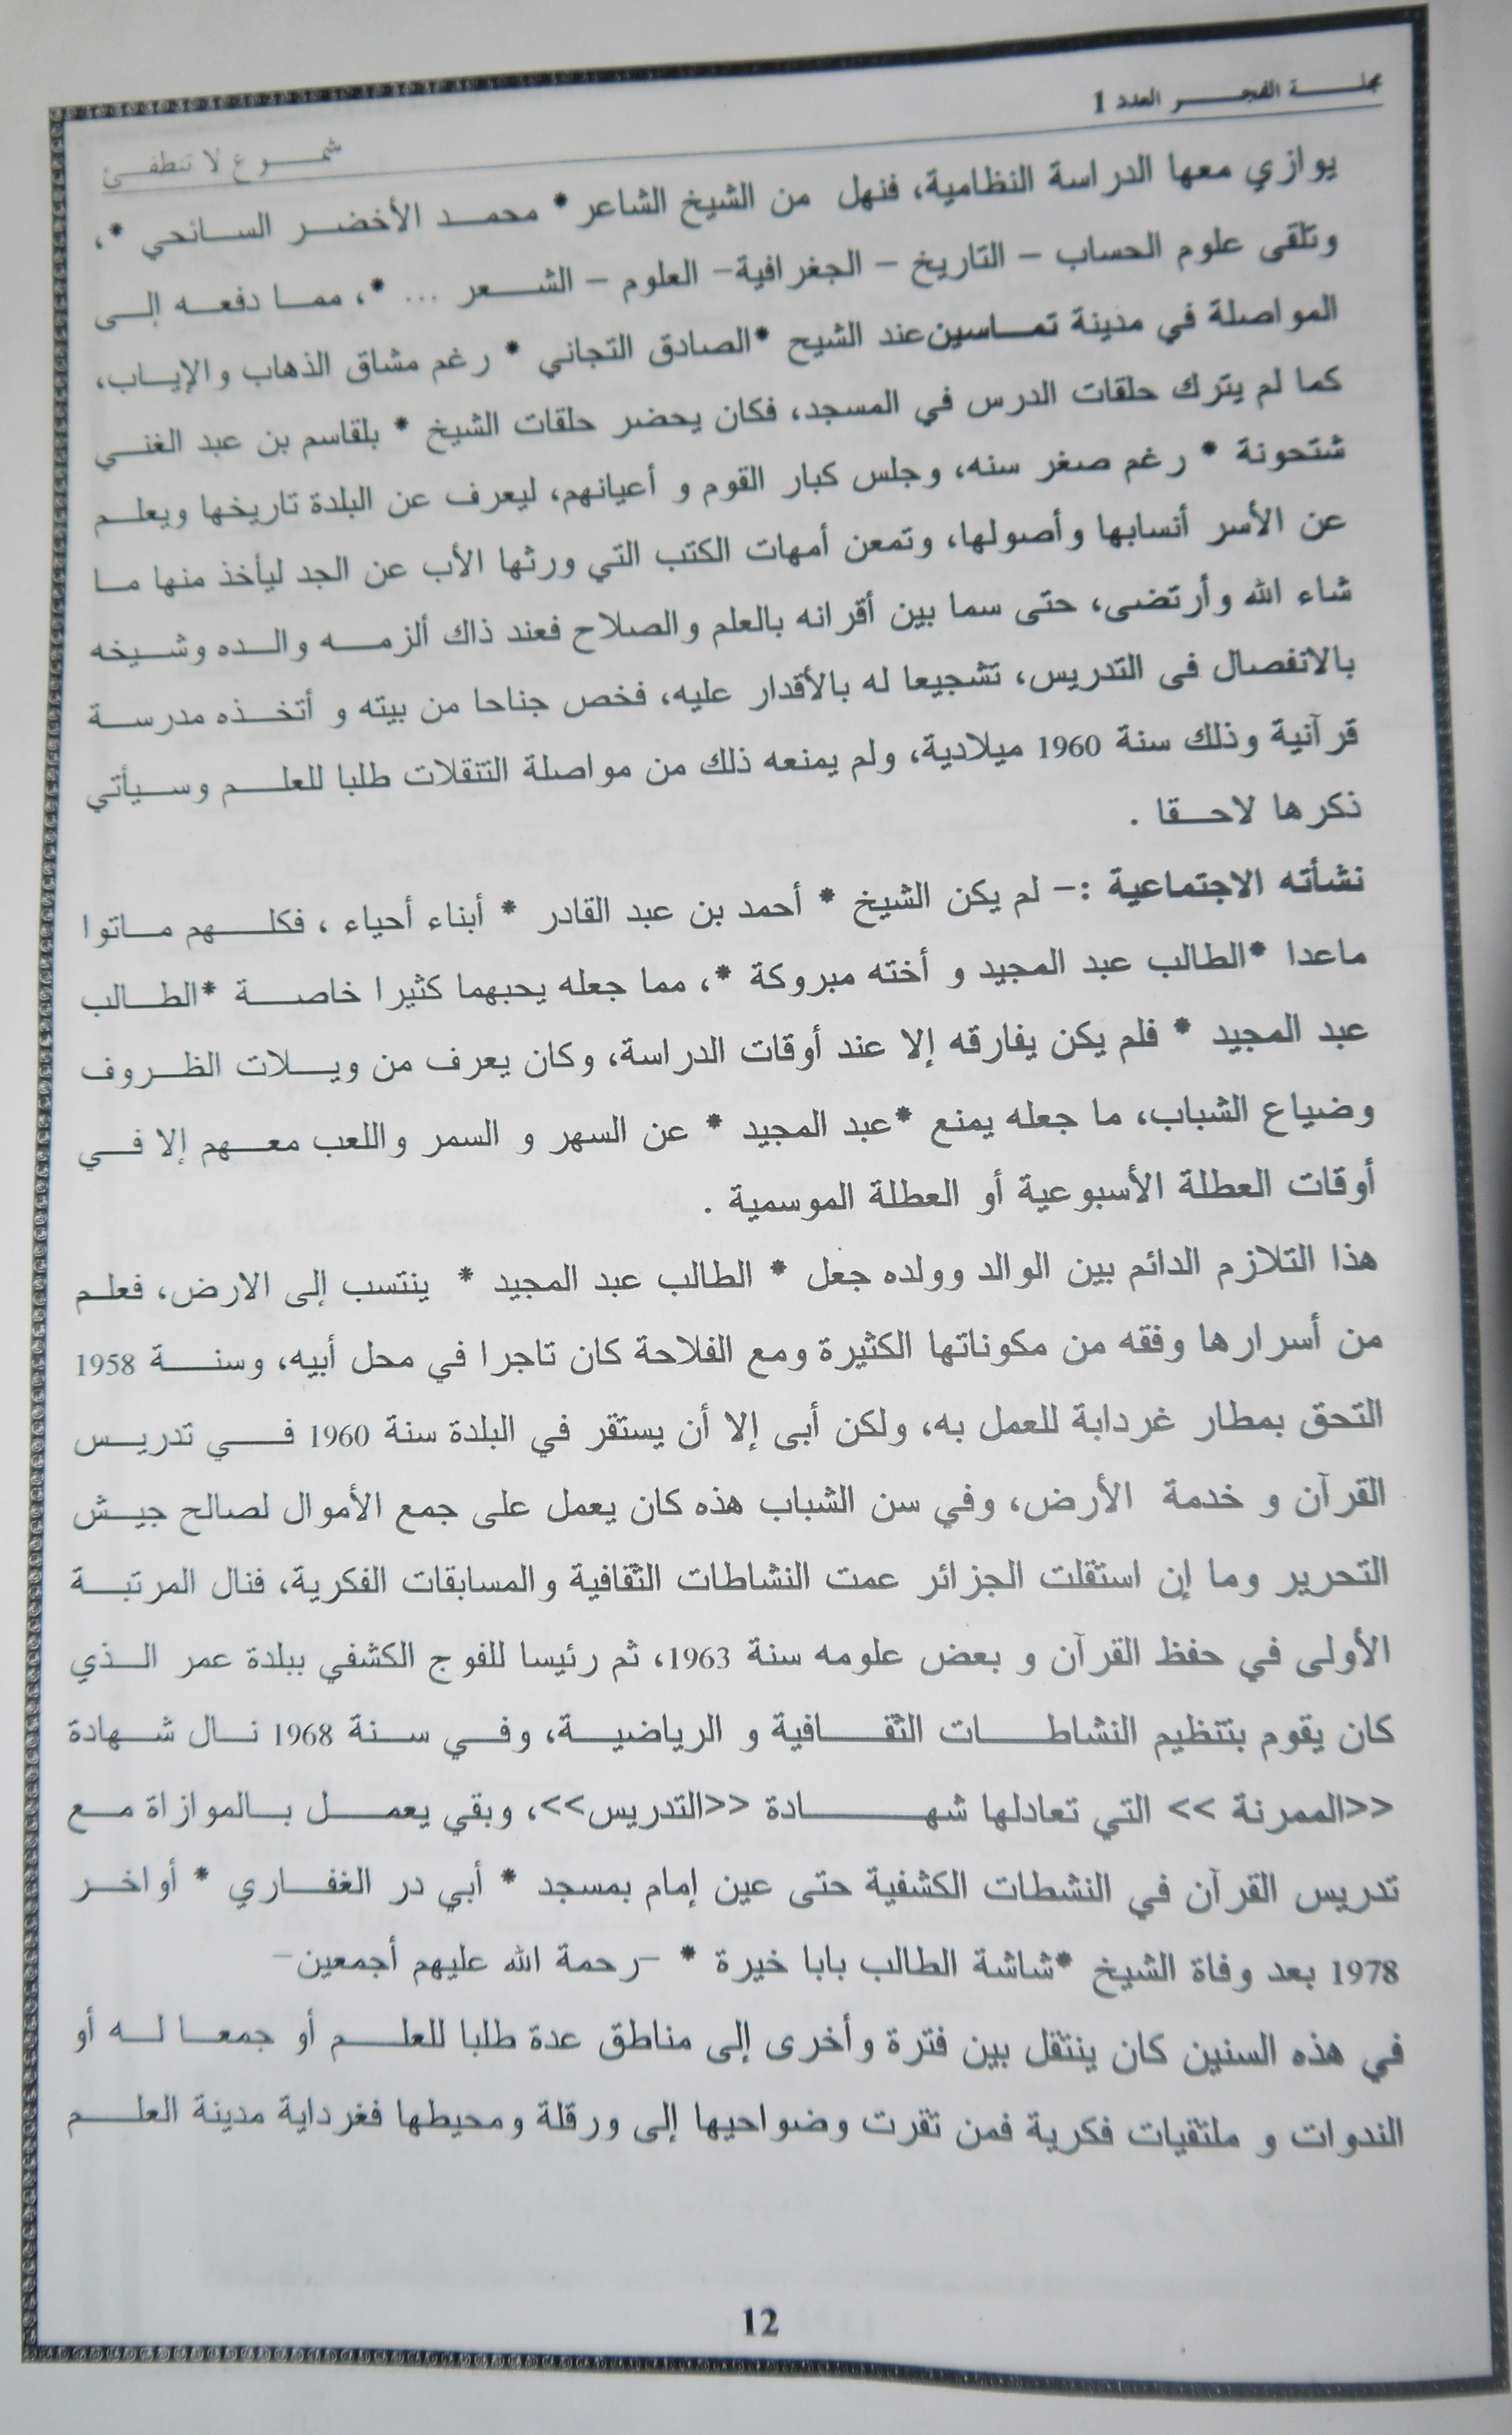 مجلة الفجر العدد 1
شموع لا تنطفئ
يوازي معها الدراسة النظامية، فنهل من الشيخ الشاعر * محمد الأخضر السائحي *،
وتلقى علوم الحساب – التاريخ – الجغرافية– العلوم – الشعر ... *، مما دفعه إلى
المواصلة في مدينة تماسين عند الشيح *الصادق التجاني * رغم مشاق الذهاب والإياب،
كما لم يترك حلقات الدرس في المسجد، فكان يحضر حلقات الشيخ * بلقاسم بن عبد الغني
شتحونة * رغم صغر سنه، وجلس كبار القوم و أعيانهم، ليعرف عن البلدة تاريخها ويعلم
عن الأسر أنسابها وأصولها، وتمعن أمهات الكتب التي ورثها الأب عن الجد ليأخذ منها ما
شاء الله وأرتضى، حتى سما بين أقرانه بالعلم والصلاح فعند ذاك ألزمه والده وشيخه
بالانفصال فى التدريس، تشجيعا له بالأقدار عليه، فخص جناحا من بيته و أتخذه مدرسة
قرآنية وذلك سنة 1960 ميلادية، ولم يمنعه ذلك من مواصلة التنقلات طلبا للعلم وسيأتي
ذكرها لاحقا .
نشأته الاجتماعية :– لم يكن الشيخ * أحمد بن عبد القادر * أبناء أحياء ، فكلهم ماتوا
ماعدا *الطالب عبد المجيد و أخته مبروكة *، مما جعله يحبهما كثيرا خاصة *الطالب
عبد المجيد * فلم يكن يفارقه إلا عند أوقات الدراسة، وكان يعرف من ويلات الظروف
وضياع الشباب، ما جعله يمنع *عبد المجيد * عن السهر و السمر واللعب معهم إلا في
أوقات العطلة الأسبوعية أو العطلة الموسمية .
هذا التلازم الدائم بين الوالد وولده جعل * الطالب عبد المجيد * ينتسب إلى الارض، فعلم
من أسرارها وفقه من مكوناتها الكثيرة ومع الفلاحة كان تاجرا في محل أبيه، وسنة 1958
التحق بمطار غردابة للعمل به، ولكن أبى إلا أن يستقر في البلدة سنة 1960 في تدريس
القرآن و خدمة الأرض، وفي سن الشباب هذه كان يعمل على جمع الأموال لصالح جيش
التحرير وما إن استقلت الجزائر عمت النشاطات الثقافية والمسابقات الفكرية، فنال المرتبة
الأولى في حفظ القرآن و بعض علومه سنة 1963، ثم رئيسا للفوج الكشفي ببلدة عمر الذي
كان يقوم بتنظيم النشاطات الثقافية و الرياضية، وفي سنة 1968 نال شهادة
<<الممرنة >> التي تعادلها شهادة <<التدريس>>، وبقي يعمل بالموازاة مع
تدريس القرآن في النشطات الكشفية حتى عين إمام بمسجد * أبي در الغفاري * أواخر
1978 بعد وفاة الشيخ *شاشة الطالب بابا خيرة * –رحمة الله عليهم أجمعين–
في هذه السنين كان ينتقل بين فترة وأخرى إلى مناطق عدة طلبا للعلم أو جمعا له أو
الندوات و ملتقيات فكرية فمن تقرت وضواحيها إلى ورقلة ومحيطها فغرداية مدينة العلم
12